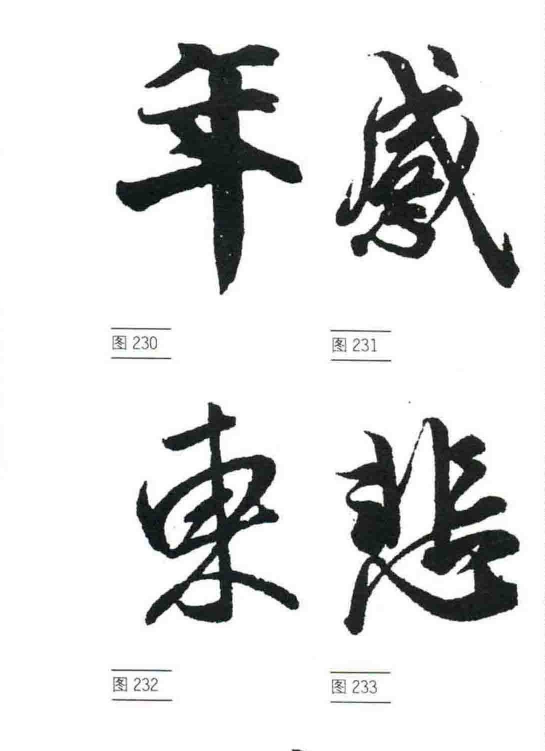 年 感
图 230 图 231
東 悲
图 232 图 233